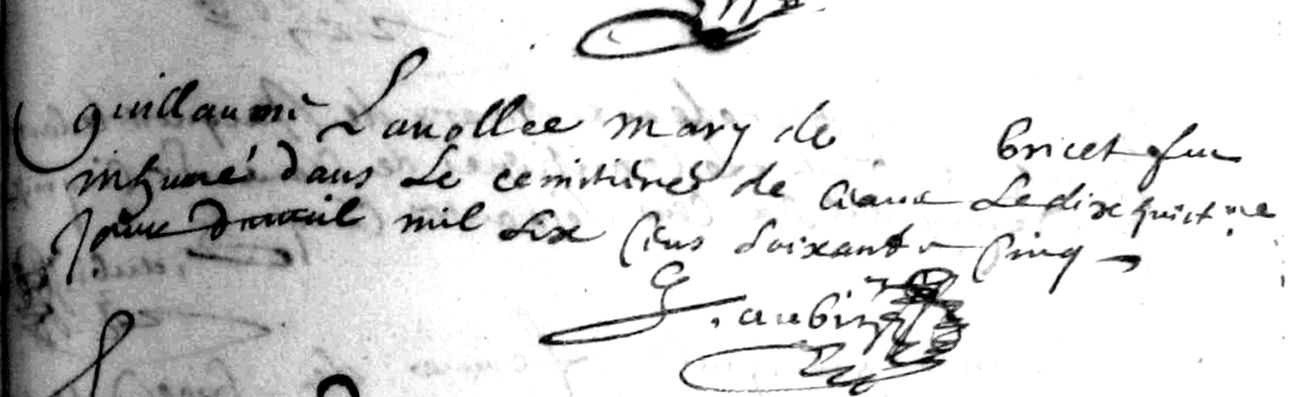 Guillaume Lavollee mary de bricet fut
inhumé dans Le cemitiere de Ciana Le dix huict me
Jour davril mil six sens soixante sinq
G. aubin